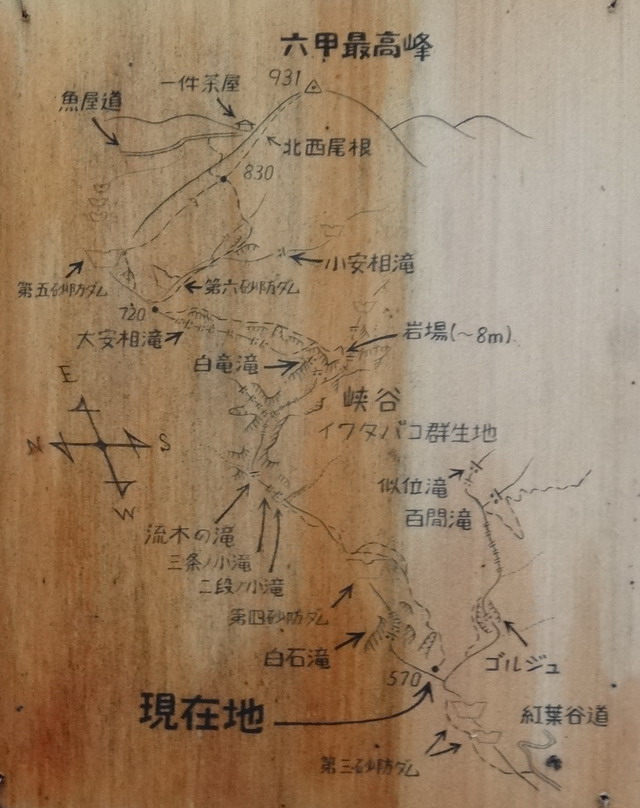 六甲最高峰
931
一件茶屋
魚屋道
北西尾根
830
小安相滝
第五砂防ダム
第六砂防ダム
720
大安相滝
岩場(～8m)
白竜滝
E
N
S
W
峡谷
イワタバコ群生地
似位滝
百間滝
流木の滝
三条ノ小滝
二段ノ小滝
第四砂防ダム
白石滝
ゴルジュ
570
現在地
紅葉谷道
第三砂防ダム